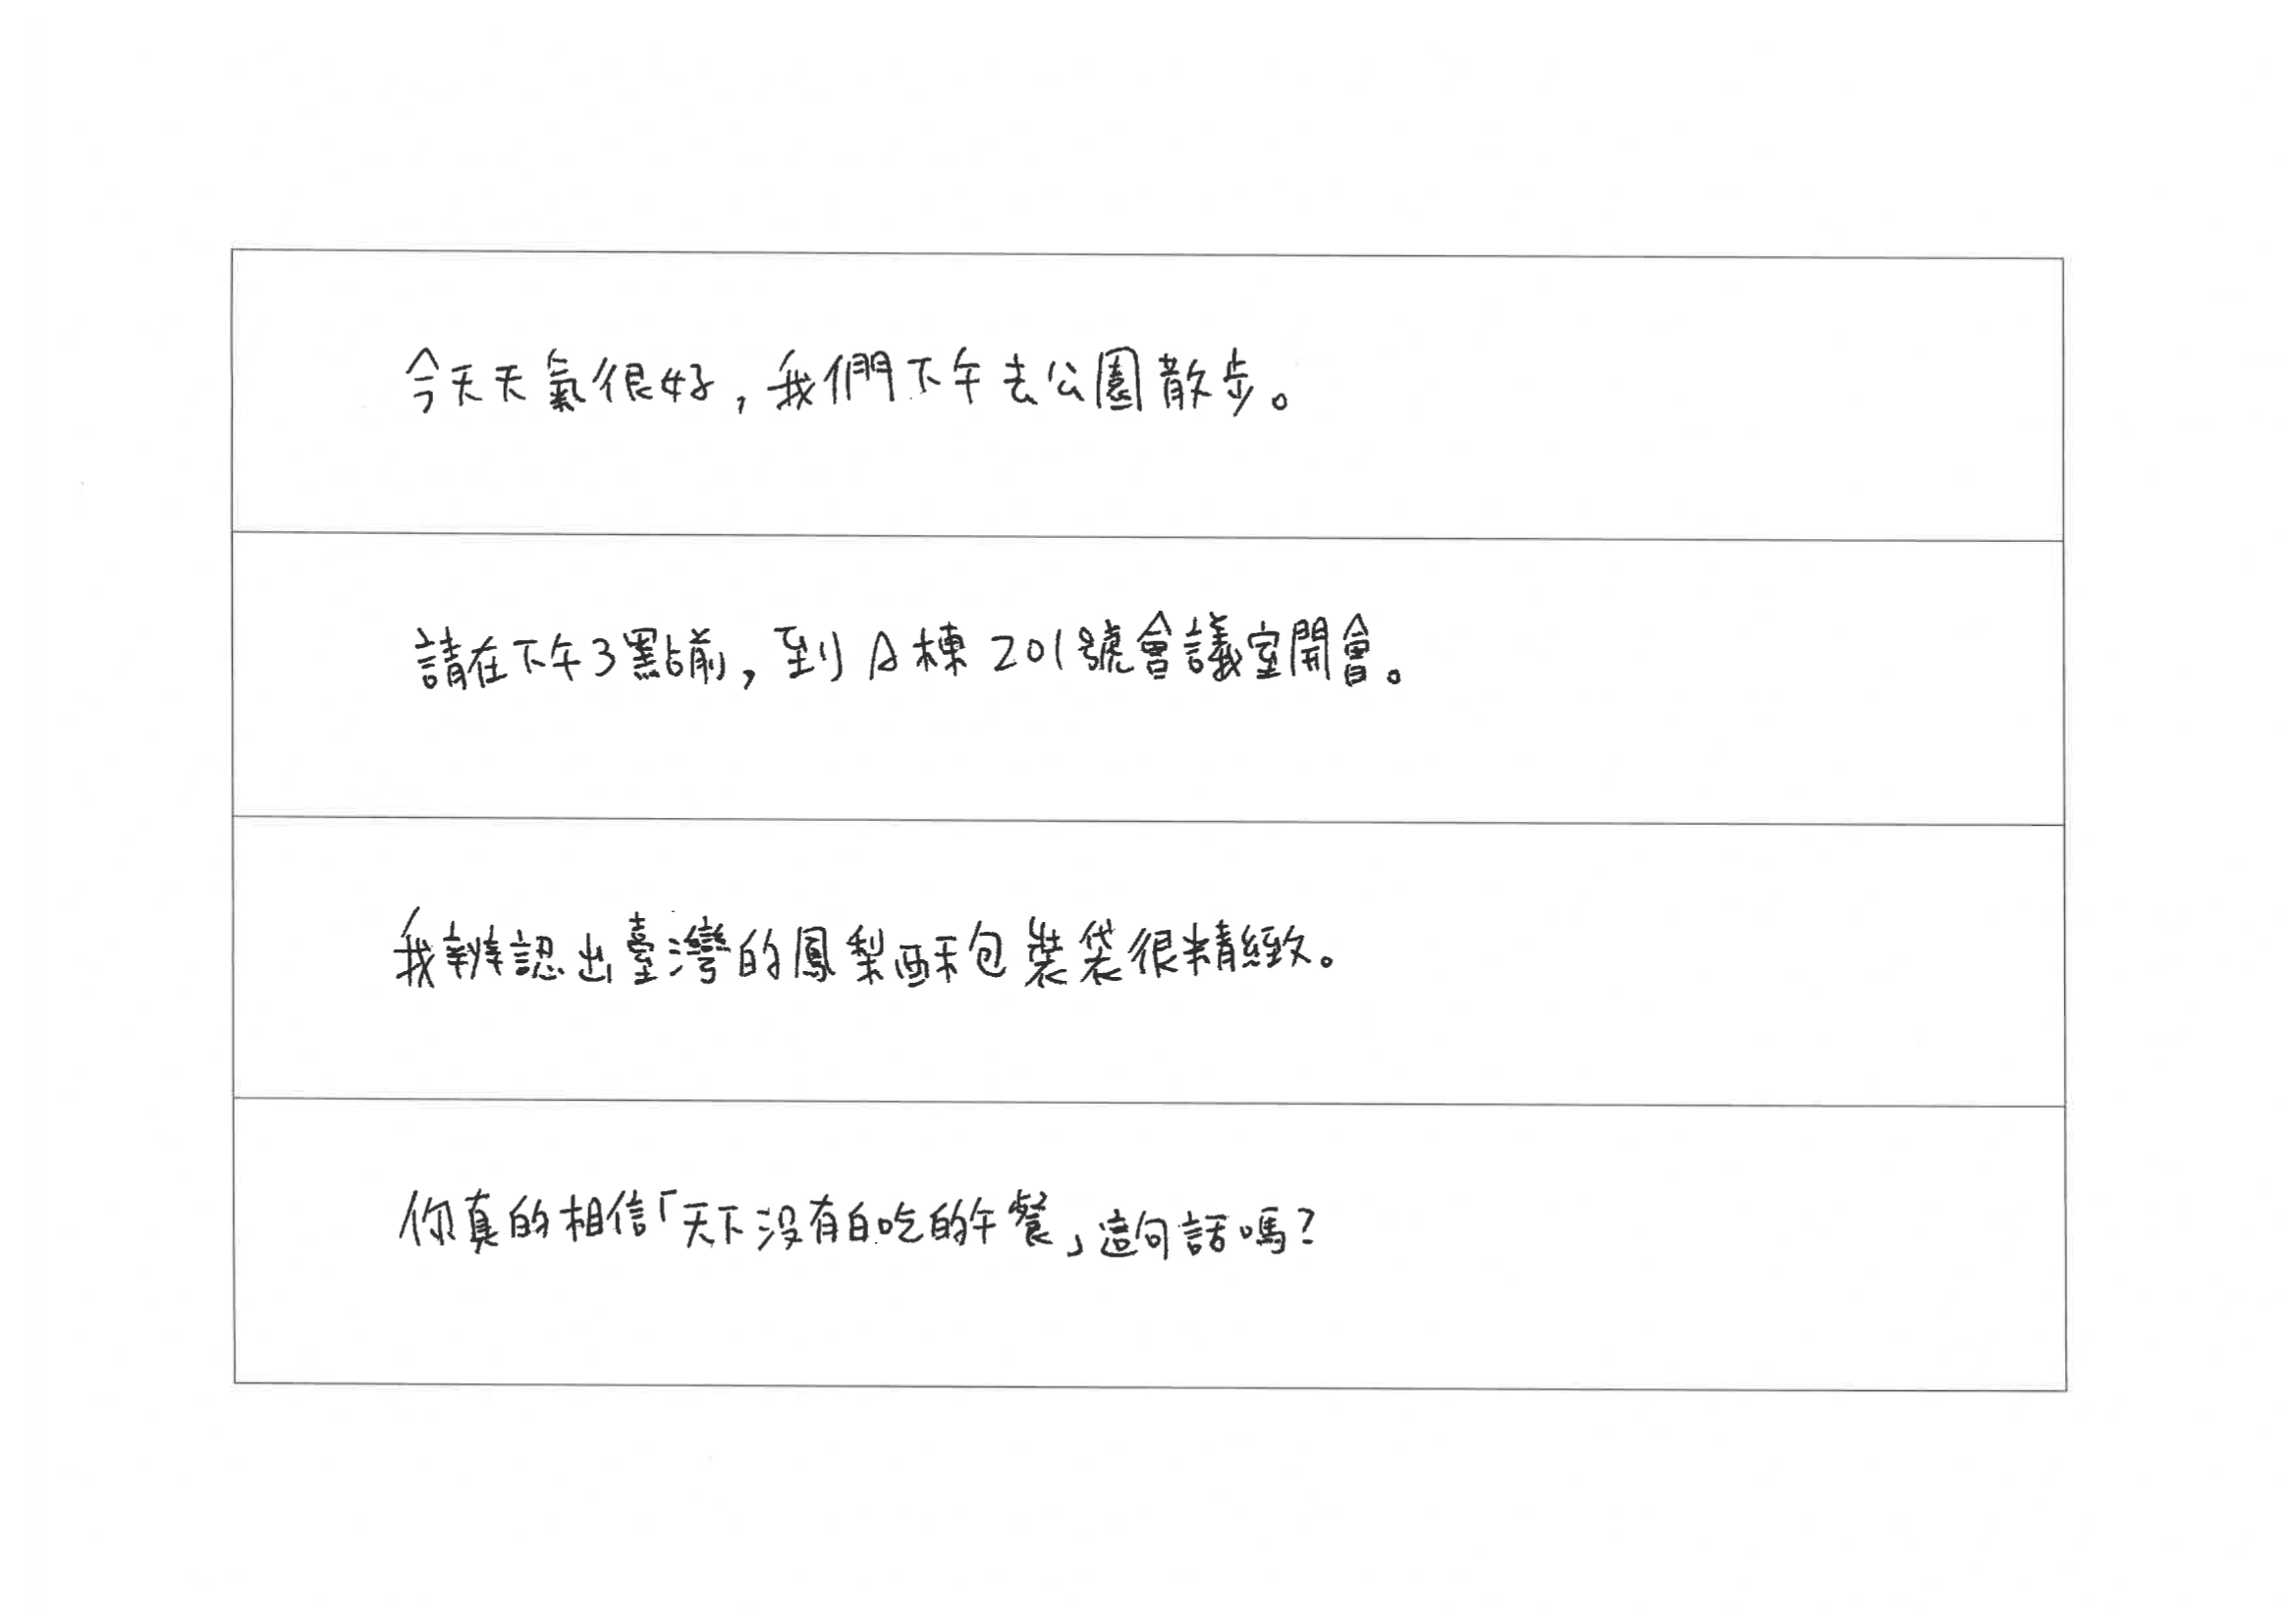 今天天氣很好，我們下午去公園散步。
請在下午3點前，到A棟201號會議室開會。
我辨認出臺灣的鳳梨酥包裝袋很精緻。
你真的相信「天下沒有白吃的午餐」這句話嗎？